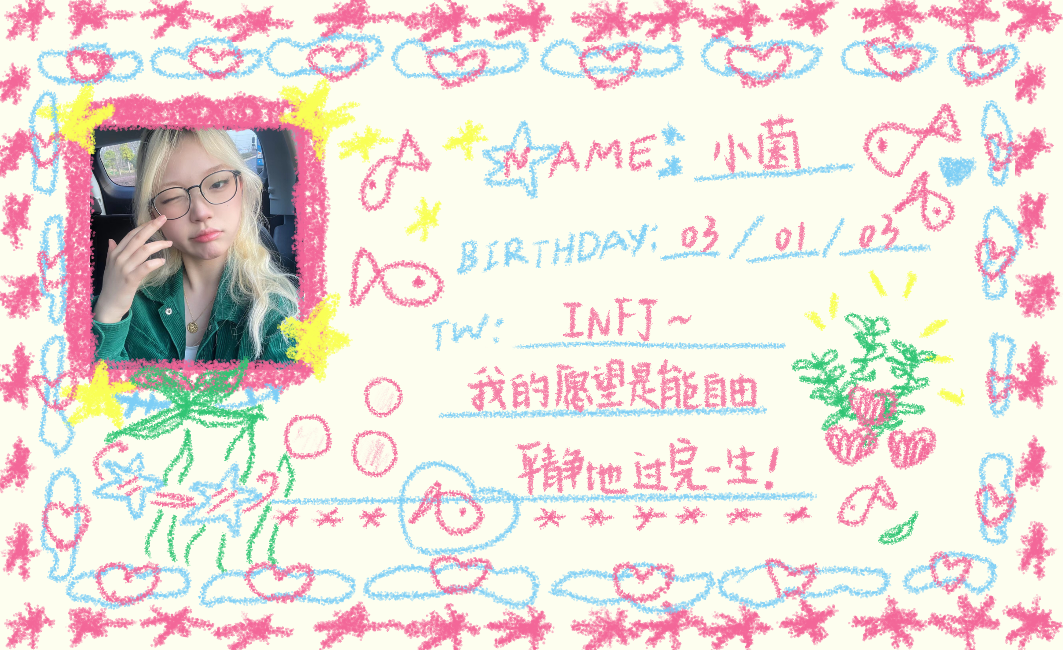 NAME: 小菌
BIRTHDAY: 03/01/03
TW: INFJ~
我的愿望是能自由
平静地过完一生!